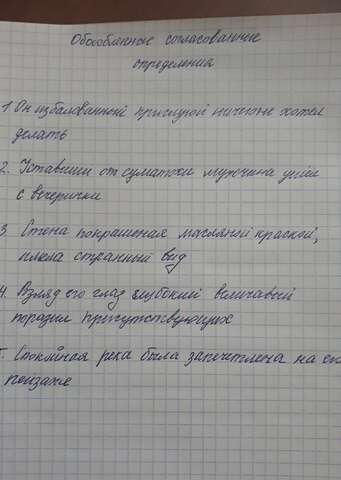 Обособленные согласованные
определения
1. Он избалованный прислугой ничего не хотел
делать
2. Уставший от суматохи мужчина ушёл
с вечеринки
3. Стена покрашеная масляной краской,
имела странный вид
4. Взгляд его глаз глубокий величавый
поразил присутствующих
5. Спокойная река была запечетлена на
пейзаже